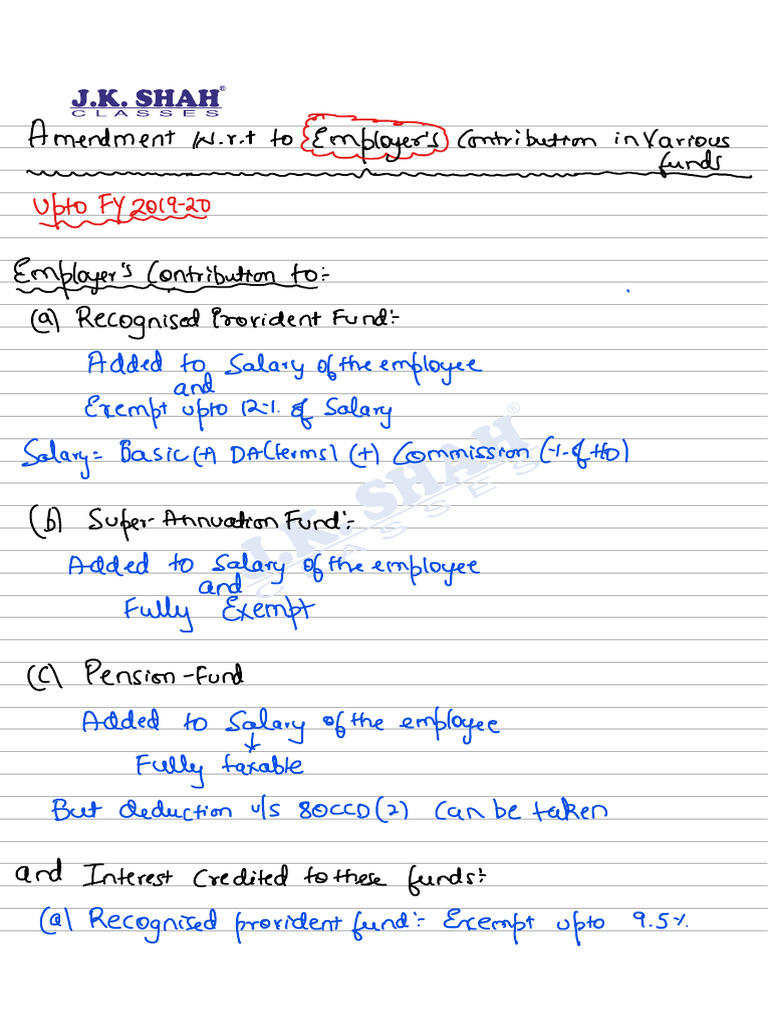 J.K. SHAH®
CLASSES
Amendment W.r.t to Employer's Contribution in Various
funds
Upto FY 2019-20
Employer's Contribution to:-
(a) Recognised Provident Fund:-
Added to Salary of the employee
and
Exempt upto 12% of Salary
Salary = Basic (+) DA (terms) (+) Commission (% of t/o)
(b) Super-Annuation Fund:-
Added to Salary of the employee
and
Fully Exempt
(c) Pension-Fund
Added to Salary of the employee
↓
Fully taxable
But deduction u/s 80CCD(2) can be taken
and Interest credited to these funds:-
(a) Recognised provident fund:- Exempt upto 9.5%
J.K. SHAH®
CLASSES